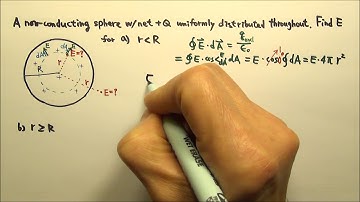 A non-conducting sphere w/net +Q uniformly distributed throughout. Find E
for a) r<R
∮E⃗·dA⃗ = q_encl/ε₀
= ∮E·cos∢dA = E·cos0∮dA = E·4π r²
E
dA
dA
E
E=?
r
R
r
E=?
E
b) r≥R
WET ERASE